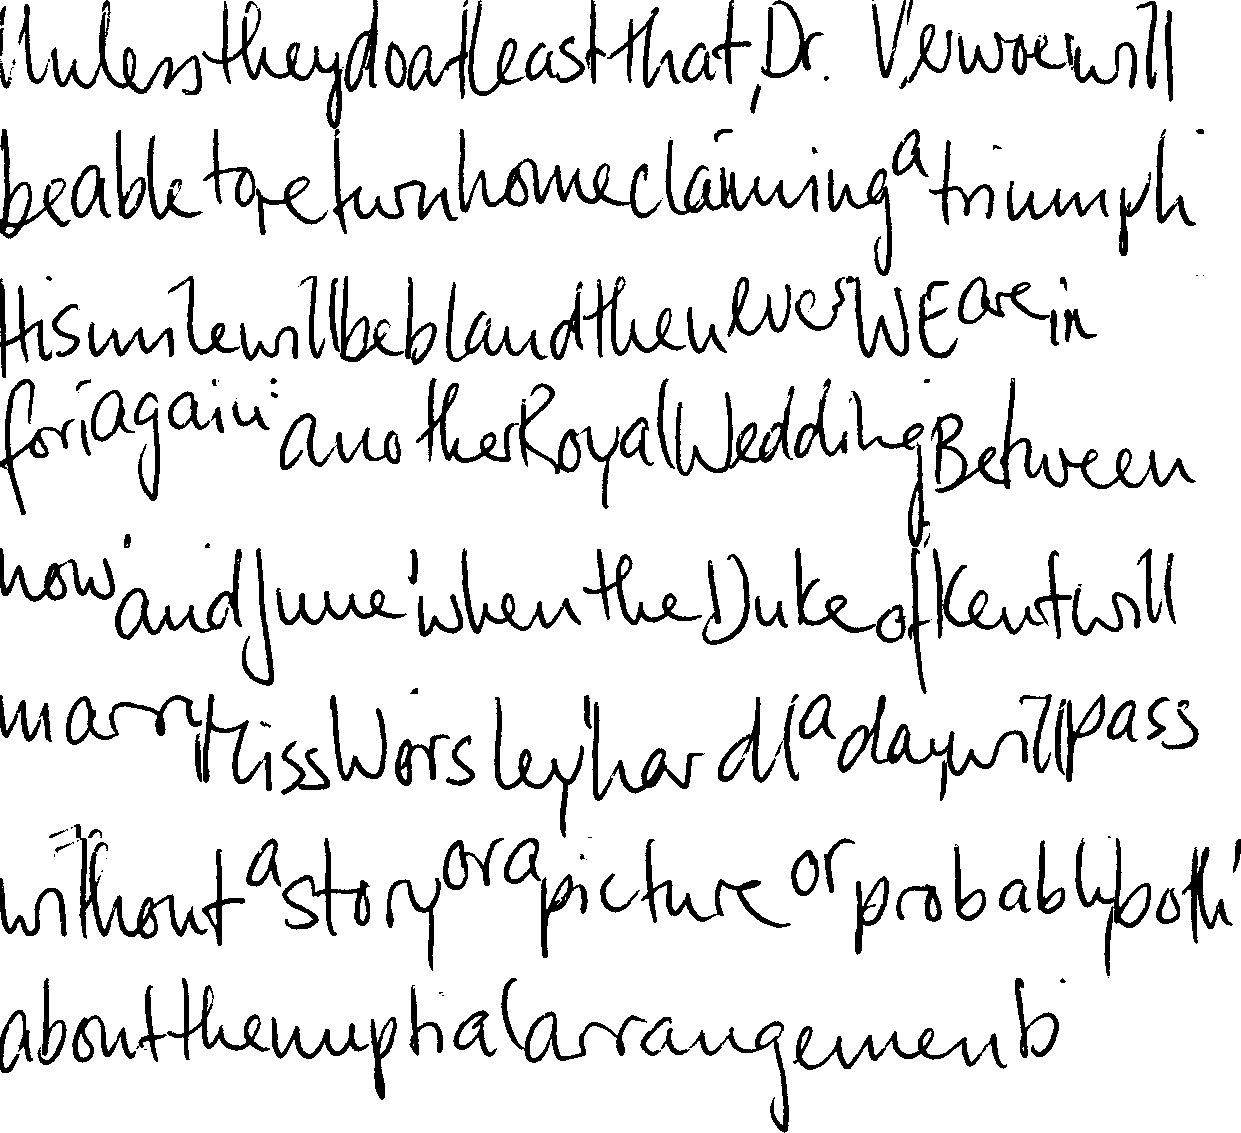 Unless they do at least that, Dr. Verwoer will
be able to return home claiming a triumph
His smile will be bland then ever WE are in
for i again: another Royal Wedding Between
now and June, when the Duke of Kent will
marry Miss Worsley, hardl a day will pass
without a story or a picture or probably both,
about the nuptial arrangements